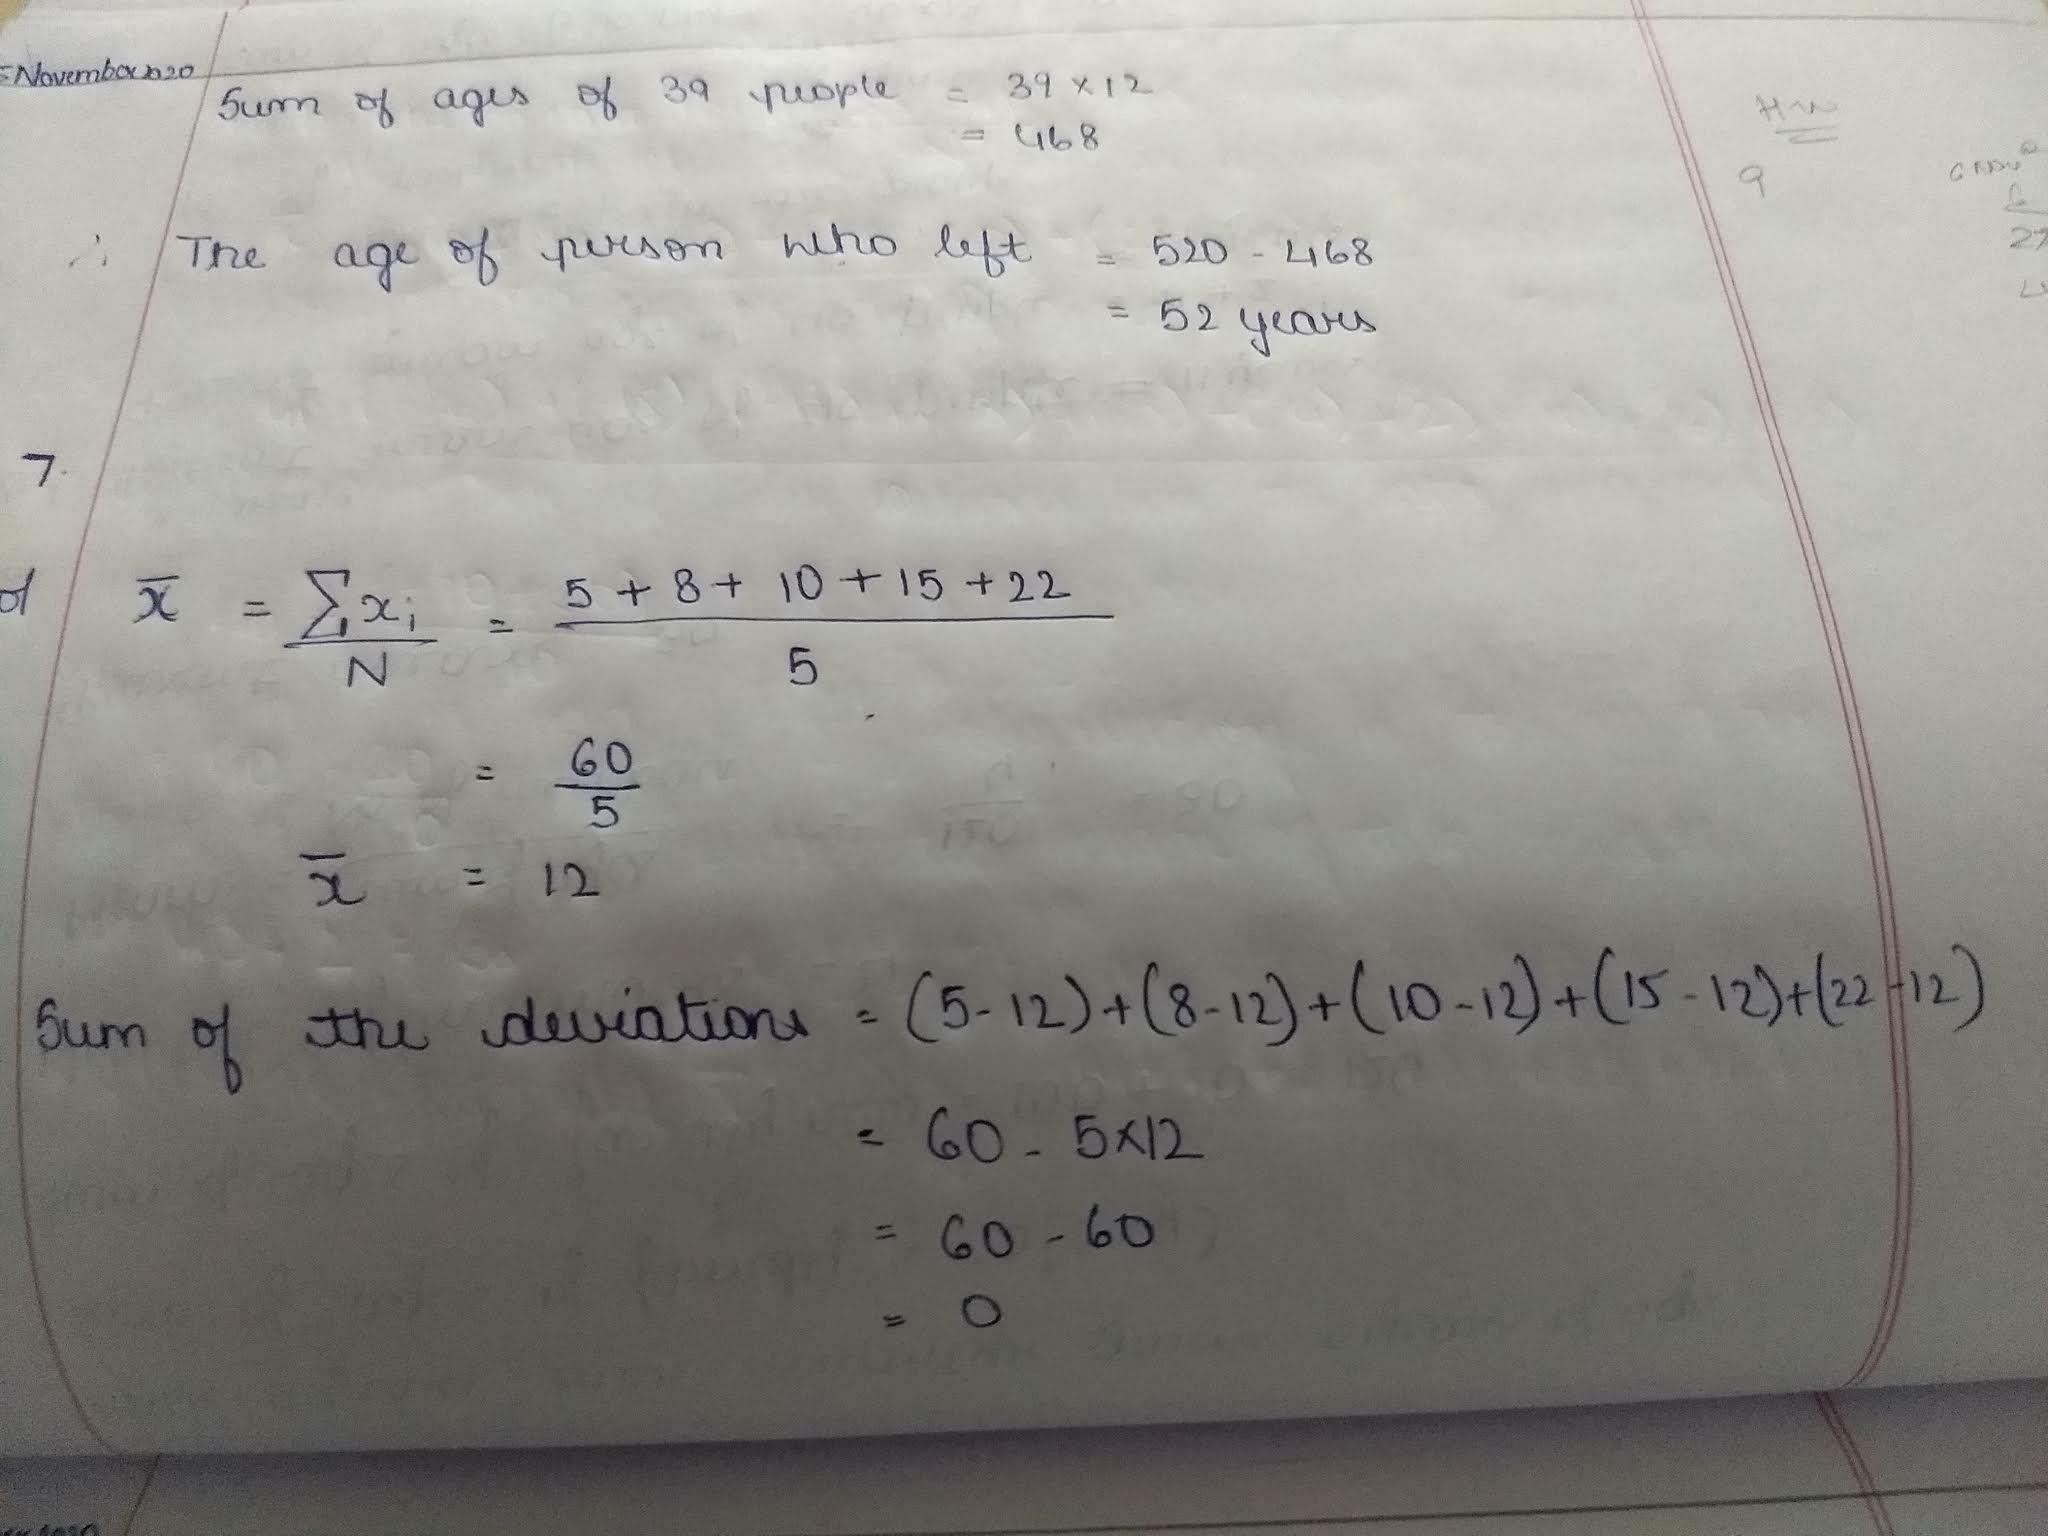 November 2020
Sum of ages of 39 people = 39 × 12
= 468
∴ The age of person who left = 520 - 468
= 52 years
HW
9
7.
x̄ = ∑xi/N = (5 + 8 + 10 + 15 + 22)/5
= 60/5
x̄ = 12
Sum of the deviations = (5-12)+(8-12)+(10-12)+(15-12)+(22-12)
= 60 - 5×12
= 60 - 60
= 0